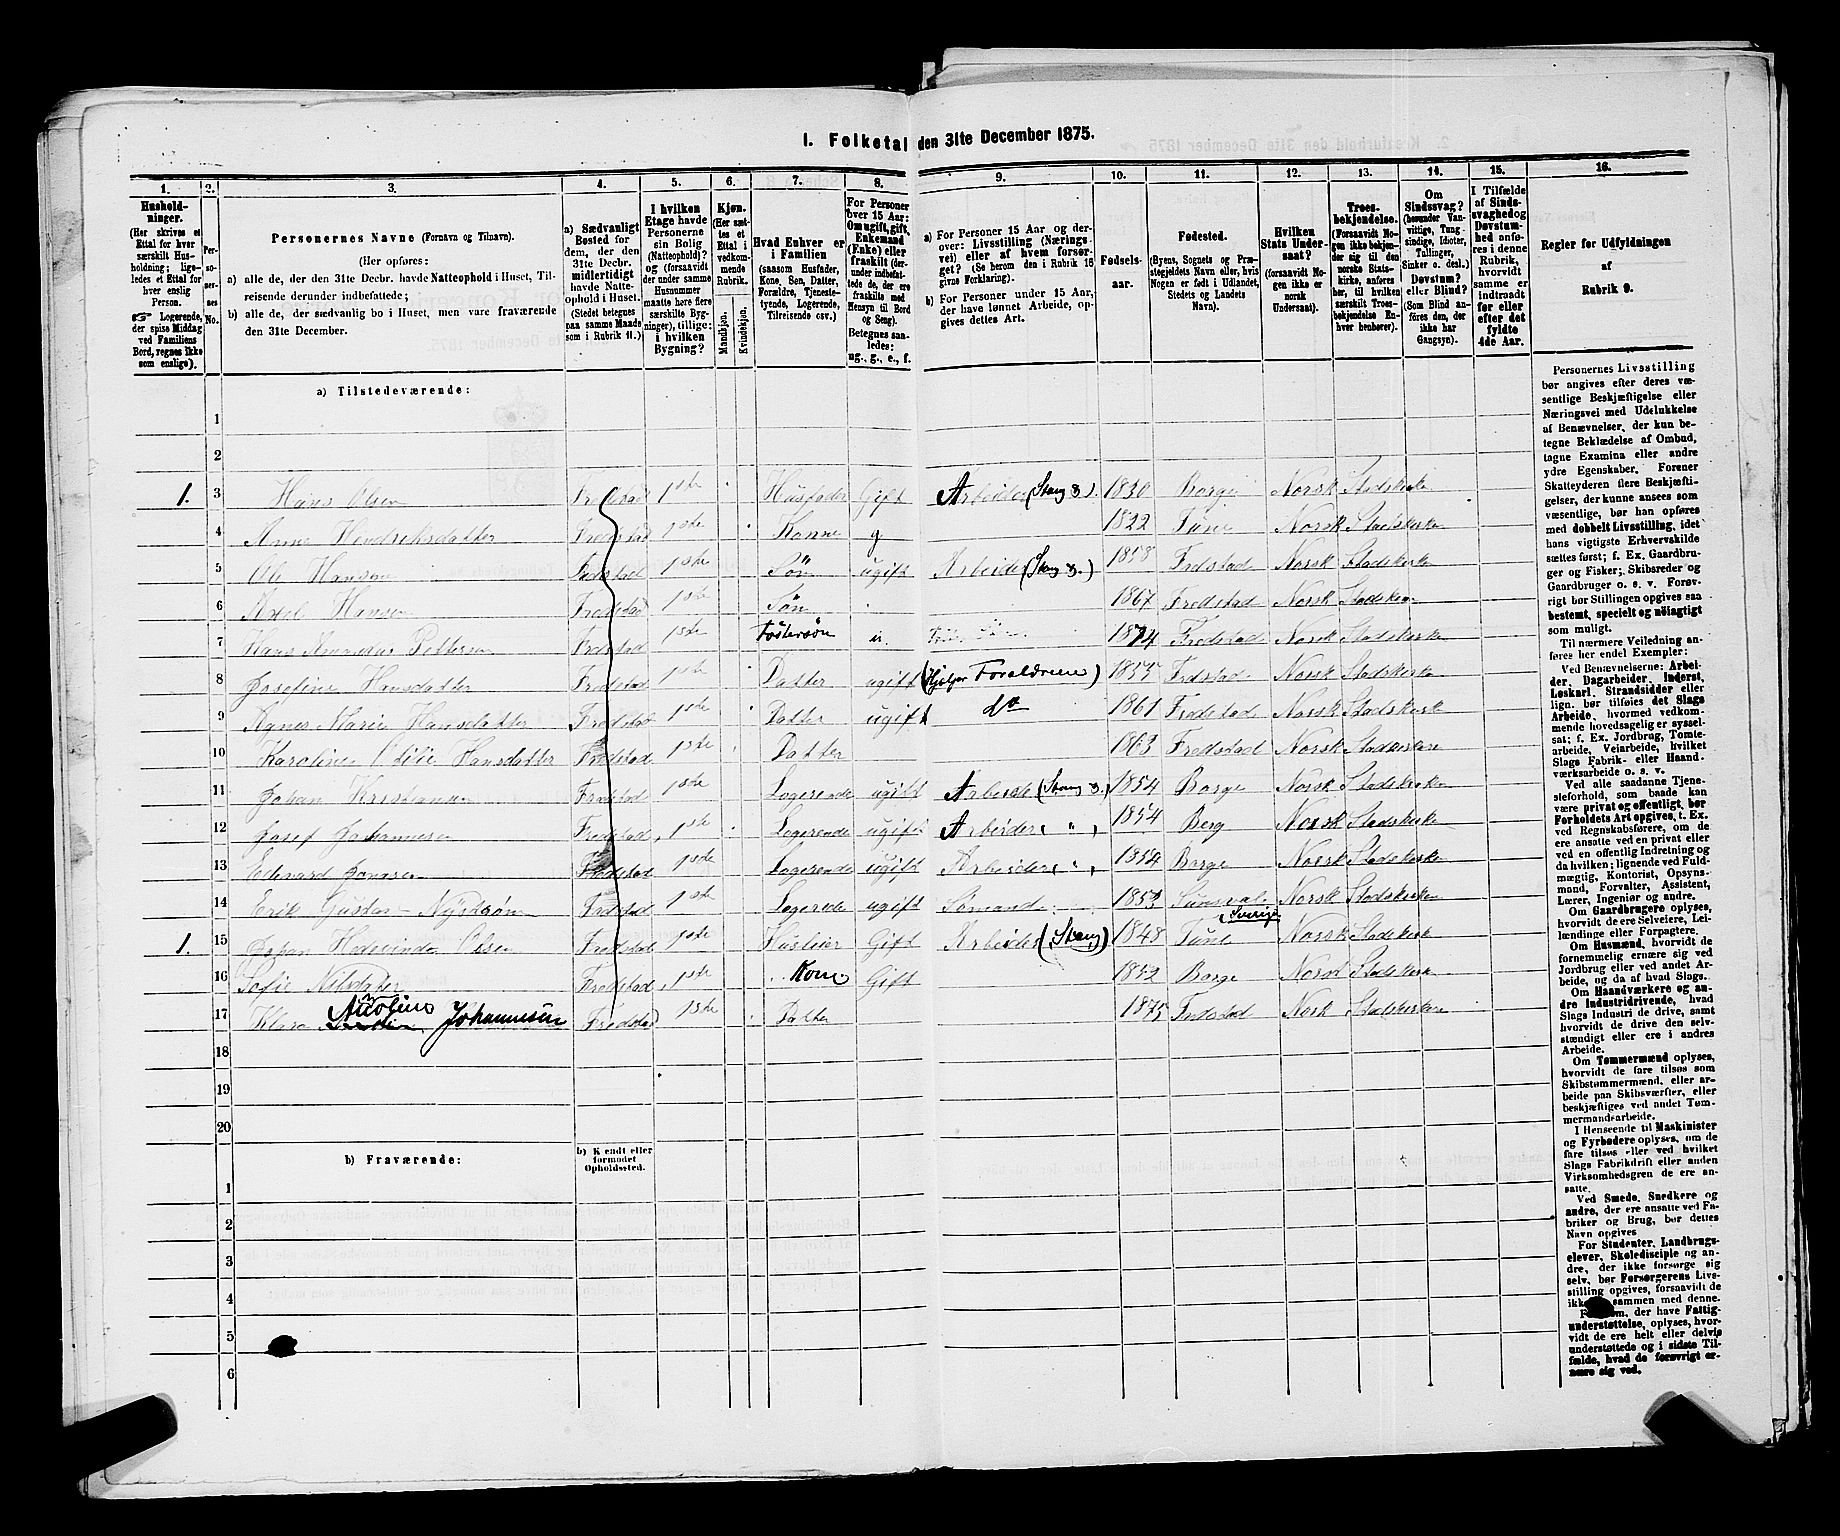 1. Folketal den 31te December 1875.
1. 2. 3. 4. 5. 6. 7. 8. 9. 10. 11. 12. 13. 14. 15. 16.
Hushold-
ninger.
(Her skrives et
Ettal for hver
særskilt Hus-
holdning; lige-
ledes et Ettal for
hver enslig
Person.
☞ Logerende,
der spise Middag
ved Familiens
Bord, regnes ikke
som enslige).
Per-
so-
ner-
nes
No.
Personernes Navne (Fornavn og Tilnavn).
(Her opføres:
a) alle de, der den 31te Decbr. havde Natteophold i Huset, Til-
reisende derunder indbefattede;
b) alle de, der sædvanlig bo i Huset, men vare fraværende
den 31te December.
a) Sædvanligt
Bosted for
dem, der den
31te Decbr.
midlertidigt
havde Natte-
ophold i Huset.
(Stedet betegnes
paa samme Maade
som i Rubrik 11.)
I hvilken
Etage havde
Personerne
sin Bolig
(Natteophold)?
og (forsaavidt
der under samme
Husnummer
maatte høre flere
særskilte Byg-
ninger), tillige:
i hvilken
Bygning?
Kjøn.
(Her sæt-
tes et
Ettal i
vedkom-
mende
Rubrik.
Mandkjøn.
Kvindekjøn.
Hvad Enhver er
i Familien
(saasom Husfader,
Kone, Søn, Datter,
Forældre, Tjeneste-
tyende, Logerende,
Tilreisende osv.)
For Personer
over 15 Aar:
Om ugift, gift,
Enkemand
(Enke) eller
fraskilt (der-
under indbefat-
tede de, der ere
fraskilte med
Hensyn til Bord
og Seng).
Betegnes saa-
ledes:
ug., g., e., f.
a) For Personer 15 Aar og der-
over: Livsstilling (Nærings-
vei) eller af hvem forsør-
get? (Se herom den i Rubrik 16
givne Forklaring).
b) For Personer under 15 Aar,
der have lønnet Arbeide, op-
gives dettes Art.
Fødsels-
aar.
Fødested.
(Byens, Sognets og Præ-
stegjeldets Navn eller, hvis
Nogen er født i Udlandet,
Stedets og Landets
Navn).
Hvilken
Stats Under-
saat?
(forsaavidt No-
gen ikke er
norsk
Undersaat).
Troes-
bekjendelse.
(Forsaavidt No-
gen ikke bekjen-
der sig til den
norske Stats-
kirke, anføres
her, til hvilken
særskilt Troes-
bekjendelse En-
hver henhører).
Om
Sindssvag?
(herunder Van-
vittige, Tung-
sindige, Idioter,
Tullinger,
Sinker o. desl.)
Døvstum?
eller Blind?
(Som Blind an-
føres den, der
ikke har
Gangsyn).
I Tilfælde
af Sinds-
svaghed og
Døvstum-
hed anfø-
res i denne
Rubrik,
hvorvidt
samme er
indtraadt
før eller
efter det
fyldte
4de Aar.
Regler for Udfyldningen
af
Rubrik 9.
a) Tilstedeværende:
1
2
1. 3 Hans Olsen Fredstad 1ste Husfader Gift Arbeider (Stang 3). 1830 Borge Norsk Stadskirke
4 Anne Hendriksdatter Fredstad 1ste Konne g 1822 Tune Norsk Stadskerke
5 Ole Hansen Fredstad 1ste Søn ugift Arbeider (Stang 3.) 1858 Fredstad Norsk Stadskerke
6 Axel Hansen Fredstad 1ste Søn 1867 Fredstad Norsk Stadskerke
7 Hans Pettersen Fredstad 1ste Fostersøn u. 1874 Fredstad Norsk Stadskerke
8 Josefine Hansdatter Fredstad 1ste Datter ugift (Hjelper Forældrene) 1855 Fredstad Norsk Stadskerke
9 Agnes Marie Hansdatter Fredstad 1ste Datter ugift do 1861 Fredstad Norsk Stadskerke
10 Karoline Otilie Hansdatter Fredstad 1ste Datter 1863 Fredstad Norsk Stadskerke
11 Johan Kristiansen Fredstad 1ste Logerende ugift Arbeide (Stang 3.) 1854 Borge Norsk Stadskerken
12 Josef Johannesen Fredstad 1ste Logerende ugift Arbeider „ „ 1854 Berg Norsk Stadskerke
13 Edevard Jonasen Fredstad 1ste Logerende ugift Arbeider „ „ 1854 Borge Norsk Stadskerke
14 Erik Gustav Nystrøm Fredstad 1ste Logerede ugift Sømand 1853 Sunsval Sverige Norsk Stadskerken
1. 15 Johan Olsen Fredstad 1ste Husleier Gift Arbeider (Stang) 1848 Tune Norsk Stadskerke
16 Sofie Nilsdatter Fredstad 1ste Kone Gift 1852 Borge Norsk Stadskerke
17 Klara Nicoline Johannesen Fredstad 1ste Datter 1875 Fredstad Norsk Stadskerken
18
19
20
b) Fraværende:
b) Kjendt eller
formodet
Opholdssted.
1
2
3
4
5
6
Personernes Livsstilling
bør angives efter deres væ-
sentlige Beskjæftigelse eller
Næringsvei med Udelukkelse
af Benævnelser, der kun be-
tegne Beklædelse af Ombud,
tagne Examina eller andre
ydre Egenskaber. Forener
Skatteyderen flere Beskjæfti-
gelser, der kunne ansees som
væsentlige, bør han opføres
med dobbelt Livsstilling, idet
hans vigtigste Erhvervskilde
sættes først; f. Ex. Gaardbru-
ger og Fisker; Skibsreder og
Gaardbruger o. s. v. Forøv-
rigt bør Stillingen opgives saa
bestemt, specielt og nöiagtigt
som muligt.
Til nærmere Veiledning an-
føres her endel Exempler:
Ved Benævnelserne: Arbei-
der, Dagarbeider, Inderst,
Løskarl, Strandsidder eller
lign. bør tilføies det Slags
Arbeide, hvormed vedkom-
mende hovedsagelig er syssel-
sat; f. Ex. Jordbrug, Tomte-
arbeide, Veiarbeide, hvilket
Slags Fabrik- eller Haand-
værksarbeide o. s. v.
Ved alle saadanne Tjene-
steforhold, som baade kan
være privat og offentligt, bør
Forholdets Art opgives, t. Ex.
ved Regnskabsførere, om de
ere ansatte ved en privat eller
ved en offentlig Indretning og
da hvilken; lignende ved Fuld-
mægtig, Kontorist, Opsyns-
mand, Forvalter, Assistent,
Lærer, Ingeniør og andre.
Om Gaardbrugere oplyses,
hvorvidt de ere Selveiere, Lei-
lændinge eller Forpagtere.
Om Husmænd, hvorvidt de
fornemmelig ernære sig ved
Jordbrug eller ved andet Ar-
beide, og da af hvad Slags.
Om Haandværkere og an-
dre Industridrivende, hvad
Slags Industri de drive, samt
hvorvidt de drive den selv-
stændigt eller ere i andres
Arbeide.
Om Tømmermænd oplyses,
hvorvidt de fare tilsøs som
Skibstømmermænd, eller ar-
beide paa Skibsværfter, eller
beskjæftiges ved andet Tøm-
mermandsarbeide.
I Henseende til Maskinister
og Fyrbødere oplyses, om de
fare tilsøs eller ved hvilket
Slags Fabrikdrift eller anden
Virksomhedsgren de ere an-
satte.
Ved Smede, Snedkere og
andre, der ere ansatte ved Fa-
briker og Brug, bør dettes
Navn opgives
For Studenter, Landbrugs-
elever, Skoledisciple og an-
dre, der ikke forsørge sig
selv, bør Forsørgerens Livs-
stilling opgives, forsaavidt de
ikke sammen med denne.
der have Fattig-
understøttelse, oplyses, hvor-
vidt de ere helt eller delvis
understøttede og i sidste Til-
fælde, hvad de forøvrigt er-
nære sig ved.